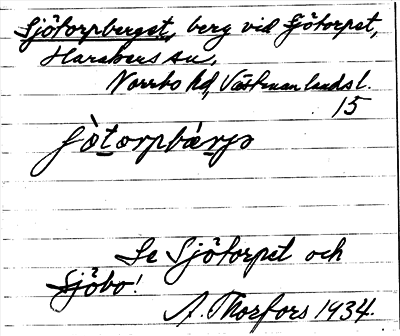 Sjötorpberget, berg vid Sjötorpet,
Harakers sn,
Norrbo hd, Västmanlands l.
15
Se Sjötorpet och
Sjöbo!
A. Thorfors 1934.